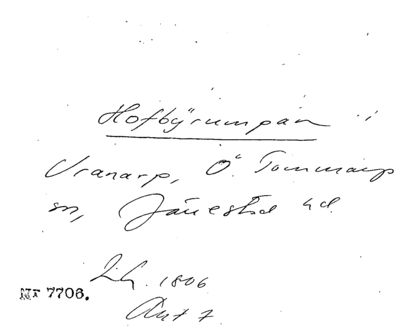 Hofbyrumpan
Vranarp, Ö. Tommarp
sn, Järrestad hd.
1806
7706.